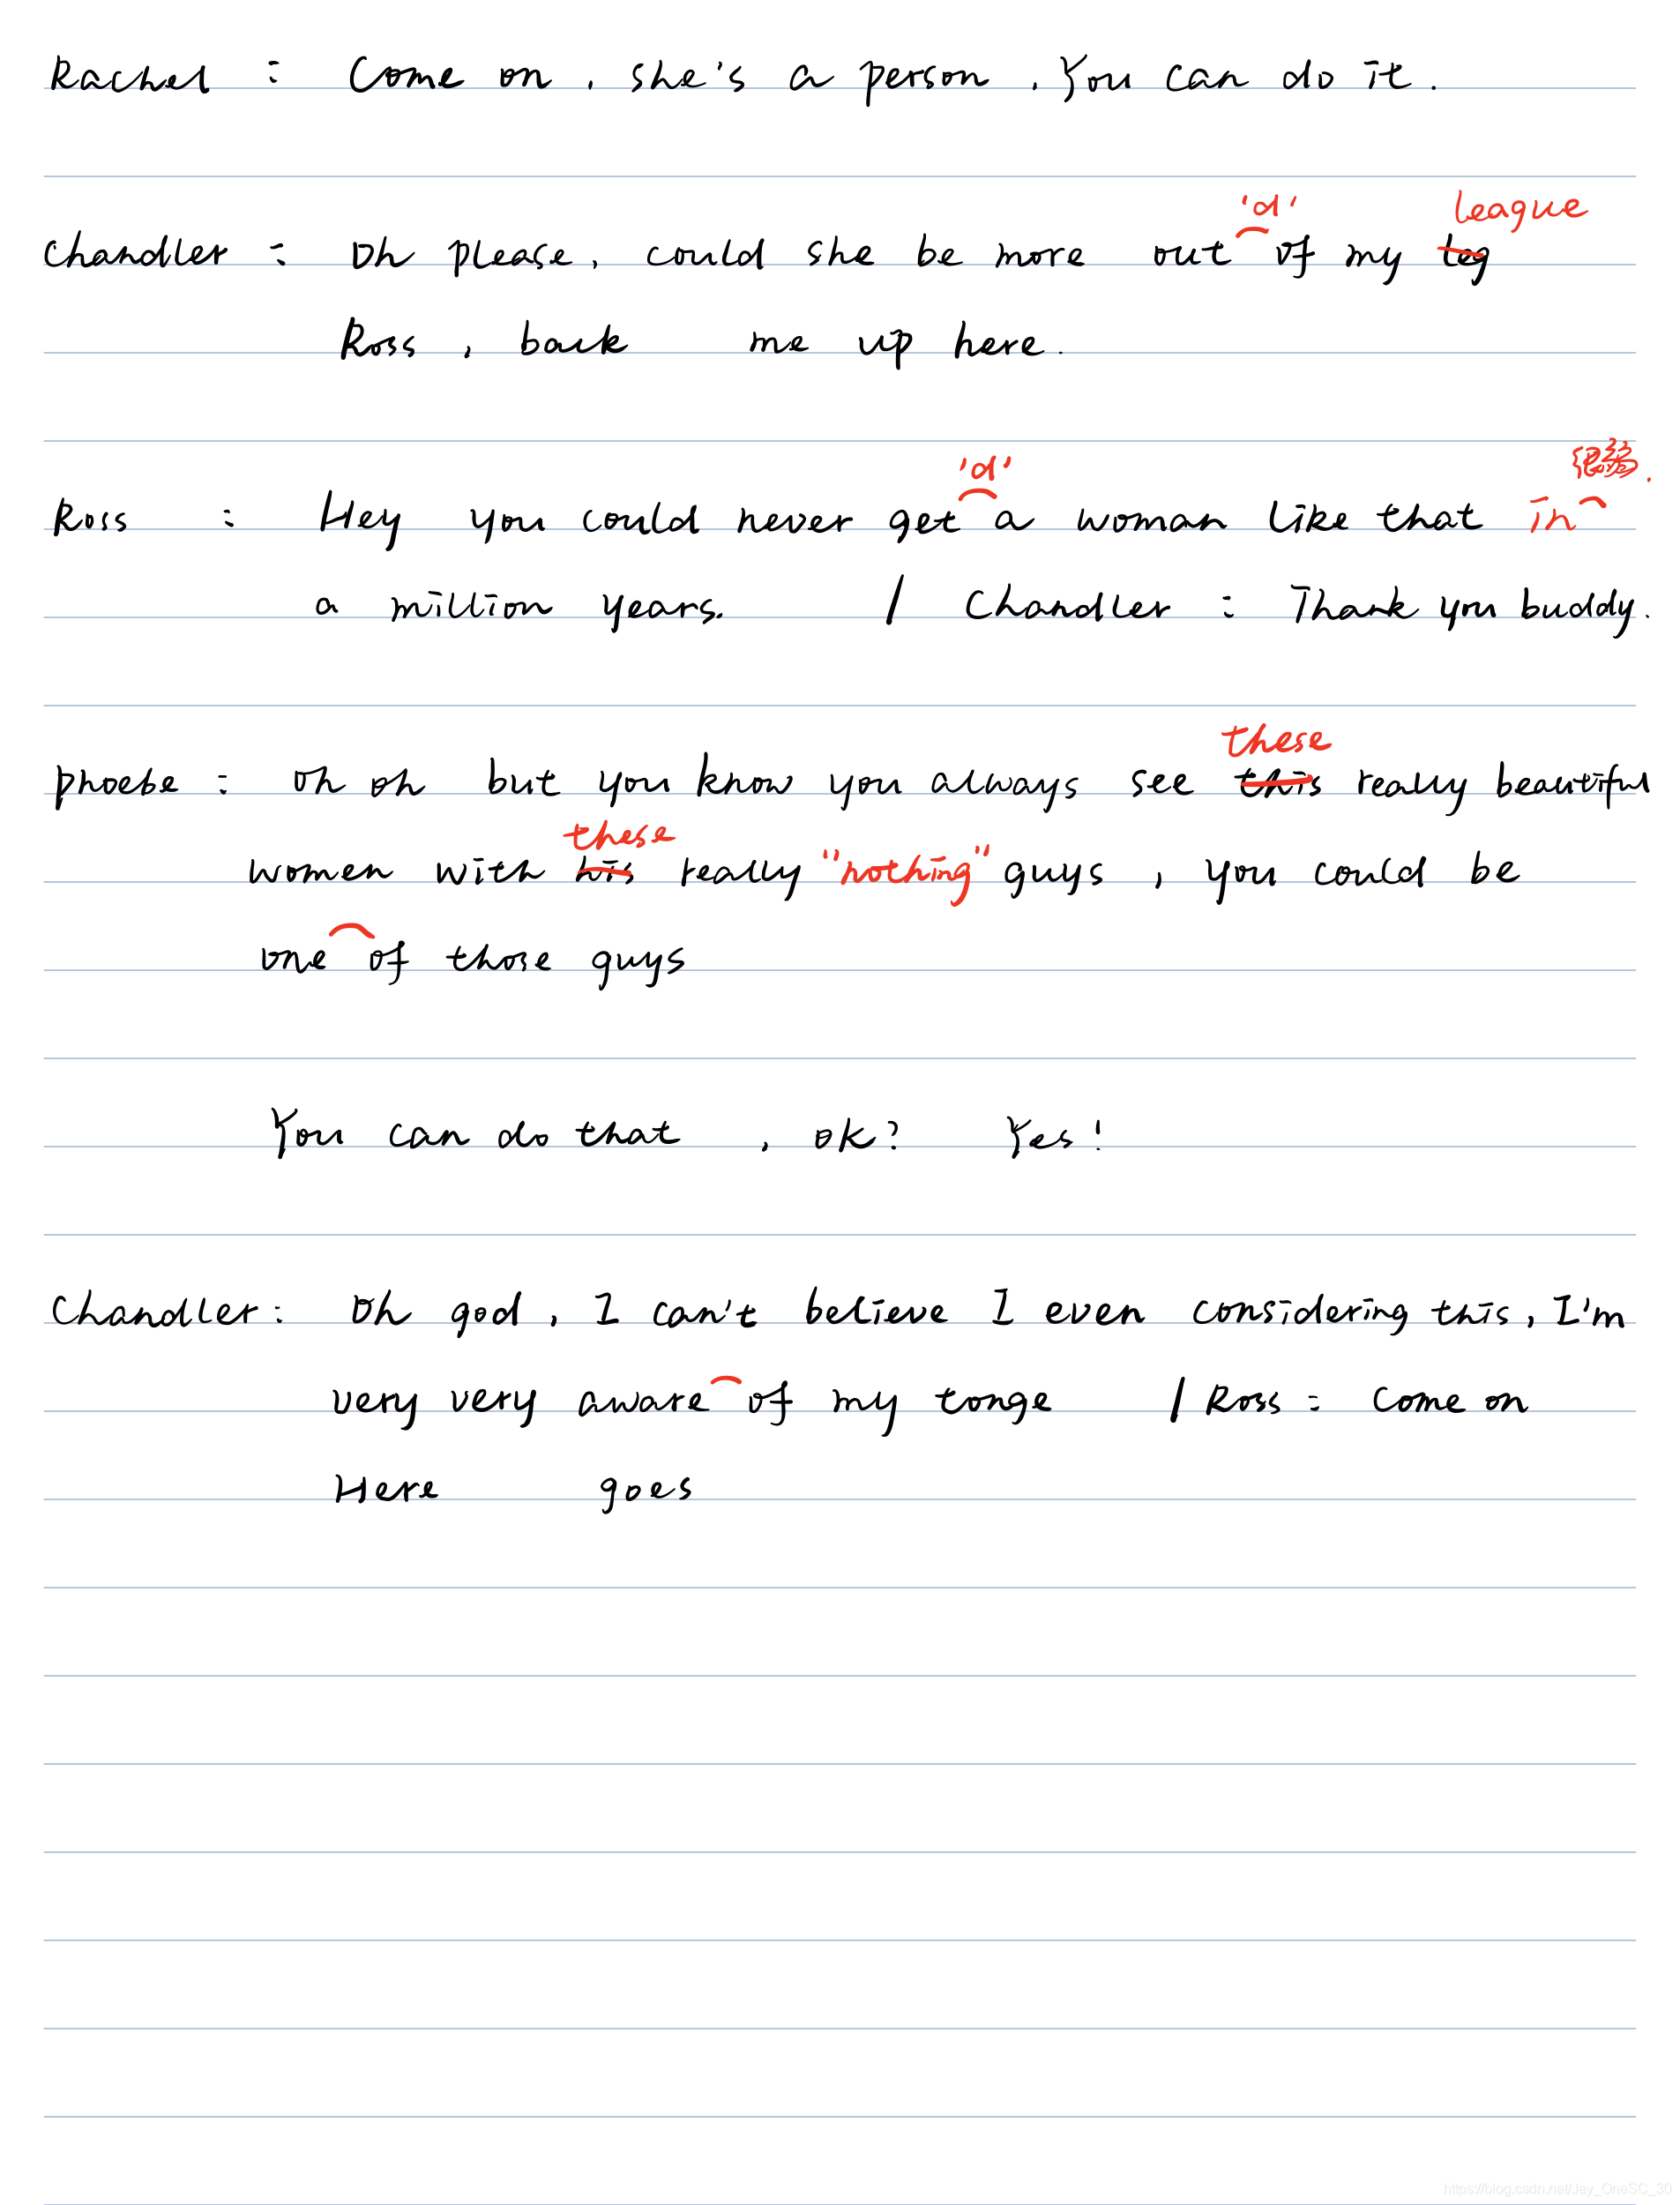 Rachel : Come on , she's a person . You can do it .
'd' league
Chandler : Oh please , could she be more out of my leg
Ross , back me up here .
'd' 很轻 .
Ross : Hey you could never get a woman like that in
a million years . / Chandler : Thank you buddy .
these
phoebe : oh oh but you know you always see this really beautiful
these
women with his really "nothing" guys , you could be
one of those guys
You can do that , ok ? Yes !
Chandler : Oh god , I can't believe I even considering this , I'm
very very aware of my tonge / Ross : Come on
Here goes
https://blog.csdn.net/Jay_OneSC_30